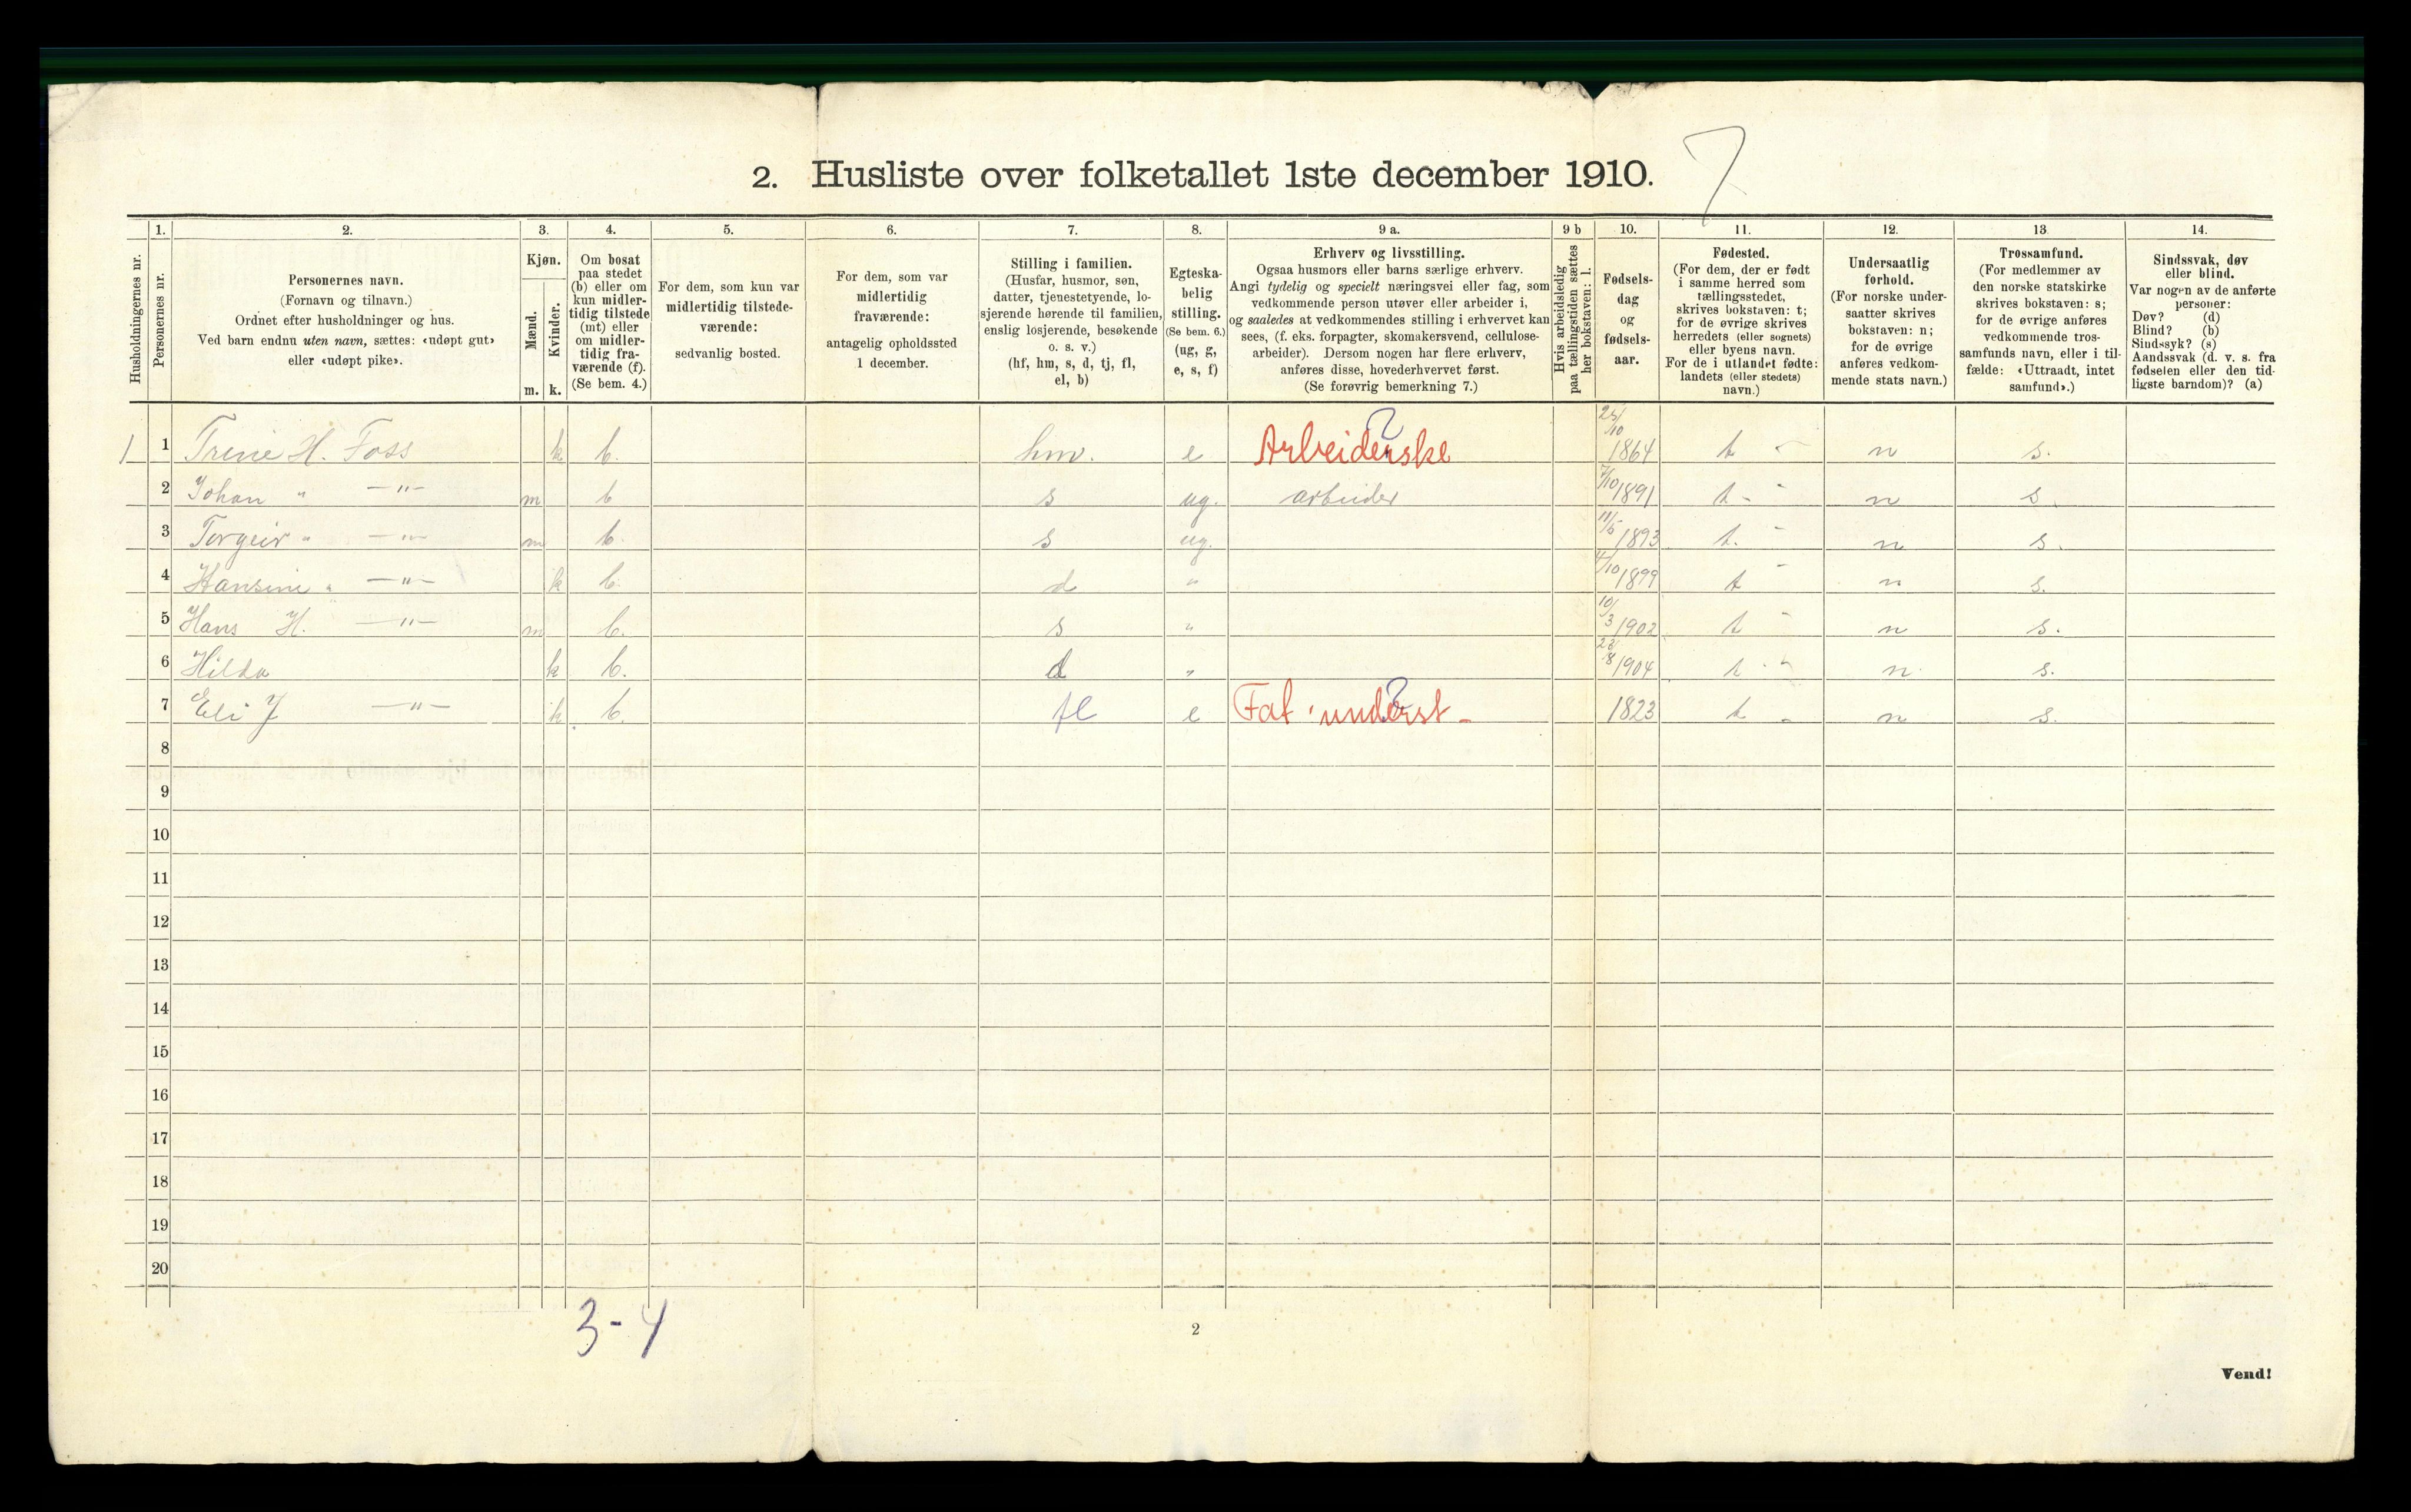 7
2. Husliste over folketallet 1ste december 1910.
Husholdningernes nr.
1. Personernes nr.
2. Personernes navn. (Fornavn og tilnavn.) Ordnet efter husholdninger og hus. Ved barn endnu uten navn, sættes: «udøpt gut» eller «udøpt pike».
3. Kjøn. Mænd. m. Kvinder. k.
4. Om bosat paa stedet (b) eller om kun midlertidig tilstede (mt) eller om midlertidig fraværende (f). (Se bem. 4.)
5. For dem, som kun var midlertidig tilstedeværende: sedvanlig bosted.
6. For dem, som var midlertidig fraværende: antagelig opholdssted 1 december.
7. Stilling i familien. (Husfar, husmor, søn, datter, tjenestetyende, losjerende hørende til familien, enslig losjerende, besøkende o. s. v.) (hf, hm, s, d, tj, fl, el, b)
8. Egteskabelig stilling. (Se bem. 6.) (ug, g, e, s, f)
9 a. Erhverv og livsstilling. Ogsaa husmors eller barns særlige erhverv. Angi tydelig og specielt næringsvei eller fag, som vedkommende person utøver eller arbeider i, og saaledes at vedkommendes stilling i erhvervet kan sees, (f. eks. forpagter, skomakersvend, cellulosearbeider). Dersom nogen har flere erhverv, anføres disse, hovederhvervet først. (Se forøvrig bemerkning 7.)
9 b Hvis arbeidsledig paa tællingstiden sættes her bokstaven: l.
10. Fødselsdag og fødselsaar.
11. Fødested. (For dem, der er født i samme herred som tællingsstedet, skrives bokstaven: t; for de øvrige skrives herredets (eller sognets) eller byens navn. For de i utlandet fødte: landets (eller stedets) navn.)
12. Undersaatlig forhold. (For norske undersaatter skrives bokstaven: n; for de øvrige anføres vedkommende stats navn.)
13. Trossamfund. (For medlemmer av den norske statskirke skrives bokstaven: s; for de øvrige anføres vedkommende trossamfunds navn, eller i tilfælde: «Uttraadt, intet samfund».)
14. Sindssvak, døv eller blind. Var nogen av de anførte personer: Døv? (d) Blind? (b) Sindssyk? (s) Aandssvak (d. v. s. fra fødselen eller den tidligste barndom)? (a)
1 1 Trine H. Foss k b. hm. e Arbeiderske ? 1864 t - n s.
2 Johan " —"— m b s ug. arbeider 7/10 1891 t - n s
3 Torgeir " —"— m b. s ug. 11/5 1893 t. - n s.
4 Hansine " —"— k b d " 4/10 1899 t - n s.
5 Hans H. —"— m b. s " 10/3 1902 t - n s.
6 Hilda k b. d " 23/8 1904 t - n s.
7 Eli J —"— k b. fl e Fat. underst - ? 1823 t - n s.
8
9
10
11
12
13
14
15
16
17
18
19
20
3-4
2
Vend!